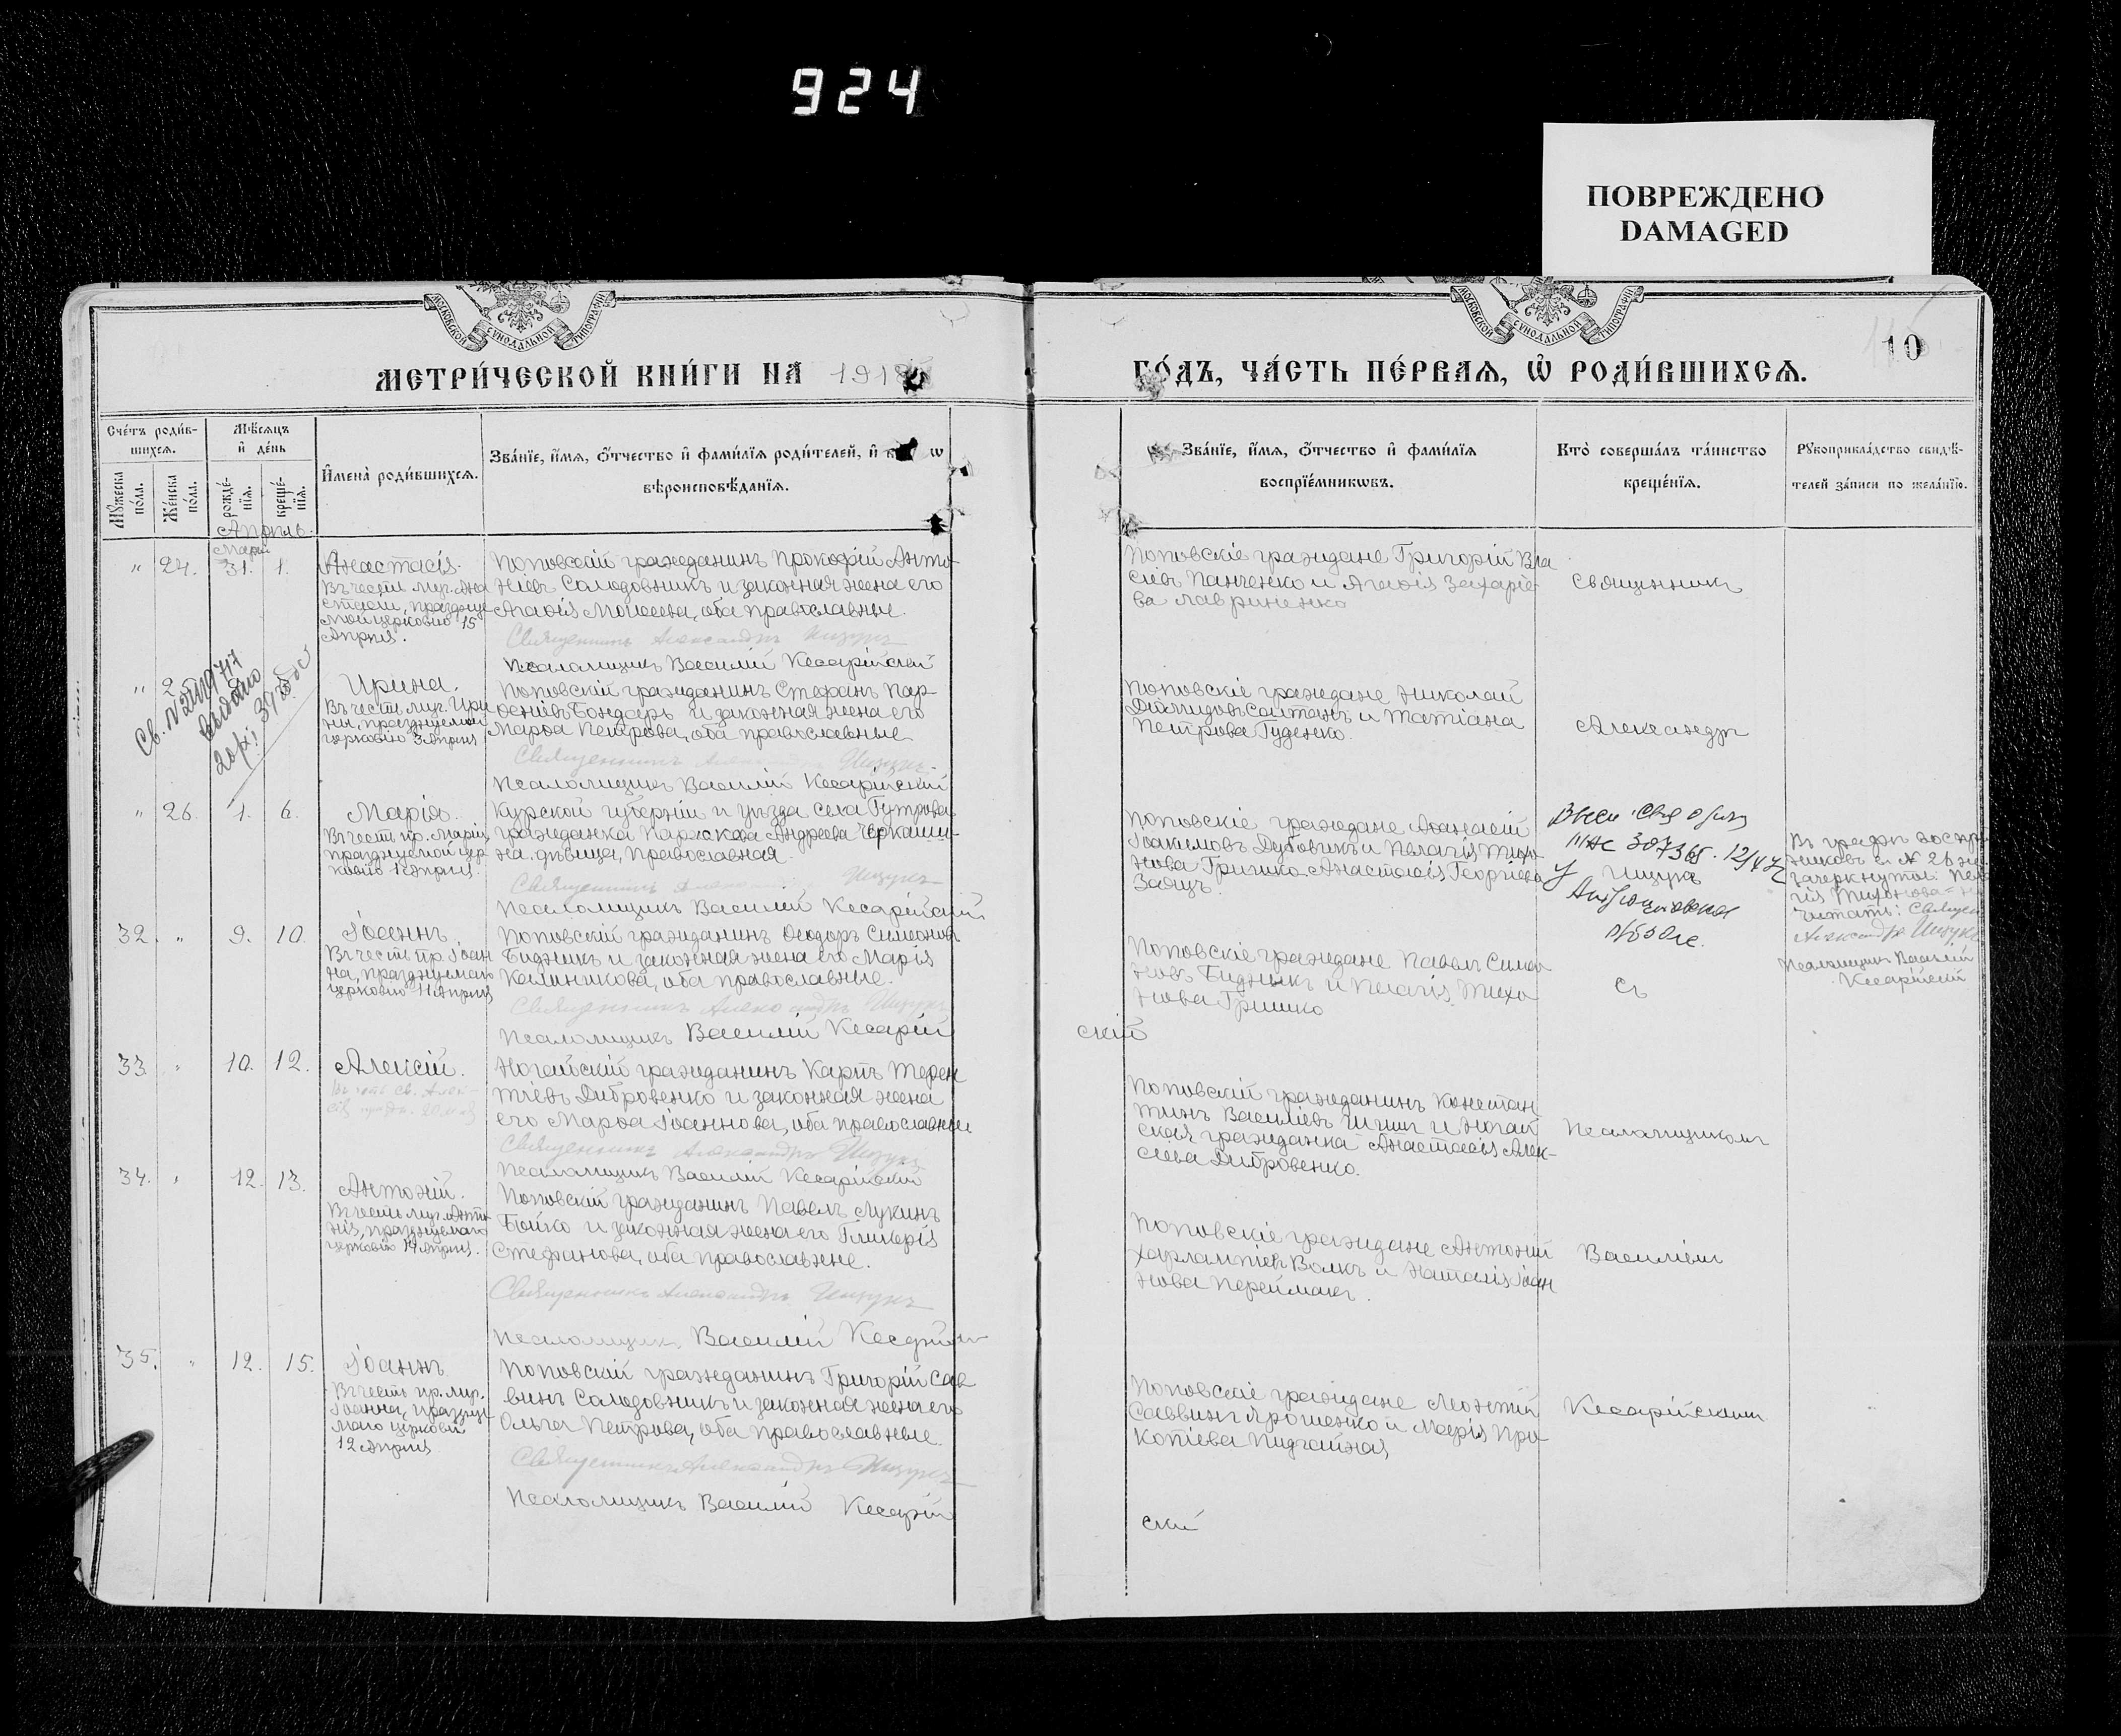 924
ПОВРЕЖДЕНО
DAMAGED
МОСКОВСКОЙ СѴНОДАЛЬНОЙ ТИПОГРАФІИ
МОСКОВСКОЙ СѴНОДАЛЬНОЙ ТИПОГРАФІИ
10
МЕТРИ́ЧЕСКОЙ КНИ́ГИ НА 1918
ГО́ДЪ, ЧА́СТЬ ПЕ́РВАѦ, Ѡ҆ РОДИ́ВШИХСѦ.
Сче́тъ роди́в-
шихсѧ.
Мꙋ́жеска по́ла.
Же́нска по́ла.
Мѣ́сѧцъ
и҆ де́нь
рожде́-
нїѧ.
креще́-
нїѧ.
И҆мена̀ роди́вшихсѧ.
Зва́нїе, и҆́мѧ, ѻ҆́тчество и҆ фами́лїѧ роди́телей, и҆
вѣроисповѣ́данїѧ.
Зва́нїе, и҆́мѧ, ѻ҆́тчество и҆ фами́лїѧ
воспрїе́мникѡвъ.
Кто̀ соверша́лъ та́инство
креще́нїѧ.
Рꙋкоприкла́дство свидѣ́-
телей за́писи по жела́нїю.
Апрѣль.
Мартъ
" 24. 31. 1. Анастасія.
Въ честь муч. Ана
стасіи, празднуе
мой церковію 15
Апрѣля.
Поповскій гражданинъ Прокофій Анто-
ніевъ Солодовникъ и законная жена его
Агафія Моисеева, оба православные.
Священникъ Александръ Ищукъ
Псаломщикъ Василій Кесарійскій
Поповскіе граждане Григорій Вла
сіевъ Панченко и Агафія Захаріе-
ва Лавриненко
Священникъ
Св. №
выдано
Ирина.
Въ честь муч. Ири
ны, празднуемой
церковію Апрѣля
Поповскій гражданинъ Стефанъ Пар-
феніевъ Бондарь и законная жена его
Марфа Петрова, оба православные
Священникъ Александръ Ищукъ
Псаломщикъ Василій Кесарійскій
Поповскіе граждане Николай
Діомидовъ Салтанъ и Татіана
Петрова Гуденко.
Александръ
" 26. 1. 6. Марія.
Въ честь пр. Маріи,
празднуемой цер
ковію 1 Апрѣля.
Курской губерніи и уѣзда села
гражданка Параскева Андреева
на, дѣвица, православная.
Священникъ Ищукъ
Псаломщикъ Василій Кесарійскій
Поповскіе граждане Афанасій
Іоакимовъ Дубовикъ и Пелагія Тихо
нова Гришко Анастасія Георгіева
Заяцъ.
307365
Ищукъ
Въ графѣ воспрі
никовъ въ № 26
зачеркнутое: Пела
гія Тихонова
читать: Священ
Александръ Ищукъ
Псаломщикъ Василій
Кесарійскій
32. " 9. 10. Іоаннъ
Въ честь пр. Іоан
на, празднуемаго
церковію 11 Апрѣля
Поповскій гражданинъ Ѳеодоръ Симеонов
Бидникъ и законная жена его Марія
Калиникова, оба православные.
Священникъ Александръ Ищукъ
Псаломщикъ Василій Кесарій
скій
Поповскіе граждане Павелъ Симео
новъ Бидникъ и Пелагія Тихо
нова Гришко
Съ
33 " 10. 12. Алексій.
Ногайскій гражданинъ Карпъ Терен
тіевъ Дибровенко и законная жена
его Марфа Іоаннова, оба православные
Священникъ Александръ Ищукъ
Псаломщикъ Василій Кесарійскій
Поповскій гражданинъ Констан
тинъ Василіевъ и Ногай
ская гражданка Анастасія Алек-
сіева Дибровенко.
Псаломщикомъ
34. " 12. 13. Антоній.
Въ честь муч. Анто
нія, празднуемаго
церковію 14 Апрѣля.
Поповскій гражданинъ Павелъ Лукинъ
Бойко и законная жена его Гликерія
Стефанова, оба православные.
Священникъ Александръ Ищукъ
Псаломщикъ Василій Кесарійскій
Поповскіе граждане Антоній
Харлампіевъ Волкъ и Наталія Іоан
нова Переймакъ.
Василіемъ
35. " 12. 15. Іоаннъ
Въ честь пр. муч.
Іоанна, праздну
маго церковію
12 Апрѣля
Поповскій гражданинъ Григорій Сав
винъ Солодовникъ и законная жена его
Ольга Петрова, оба православные.
Священникъ Александръ Ищукъ
Псаломщикъ Василій Кесарій
скій
Поповскіе граждане Леонтій
Саввинъ Ярошенко и Марія Про
копіева Пидгайная
Кесарійскимъ